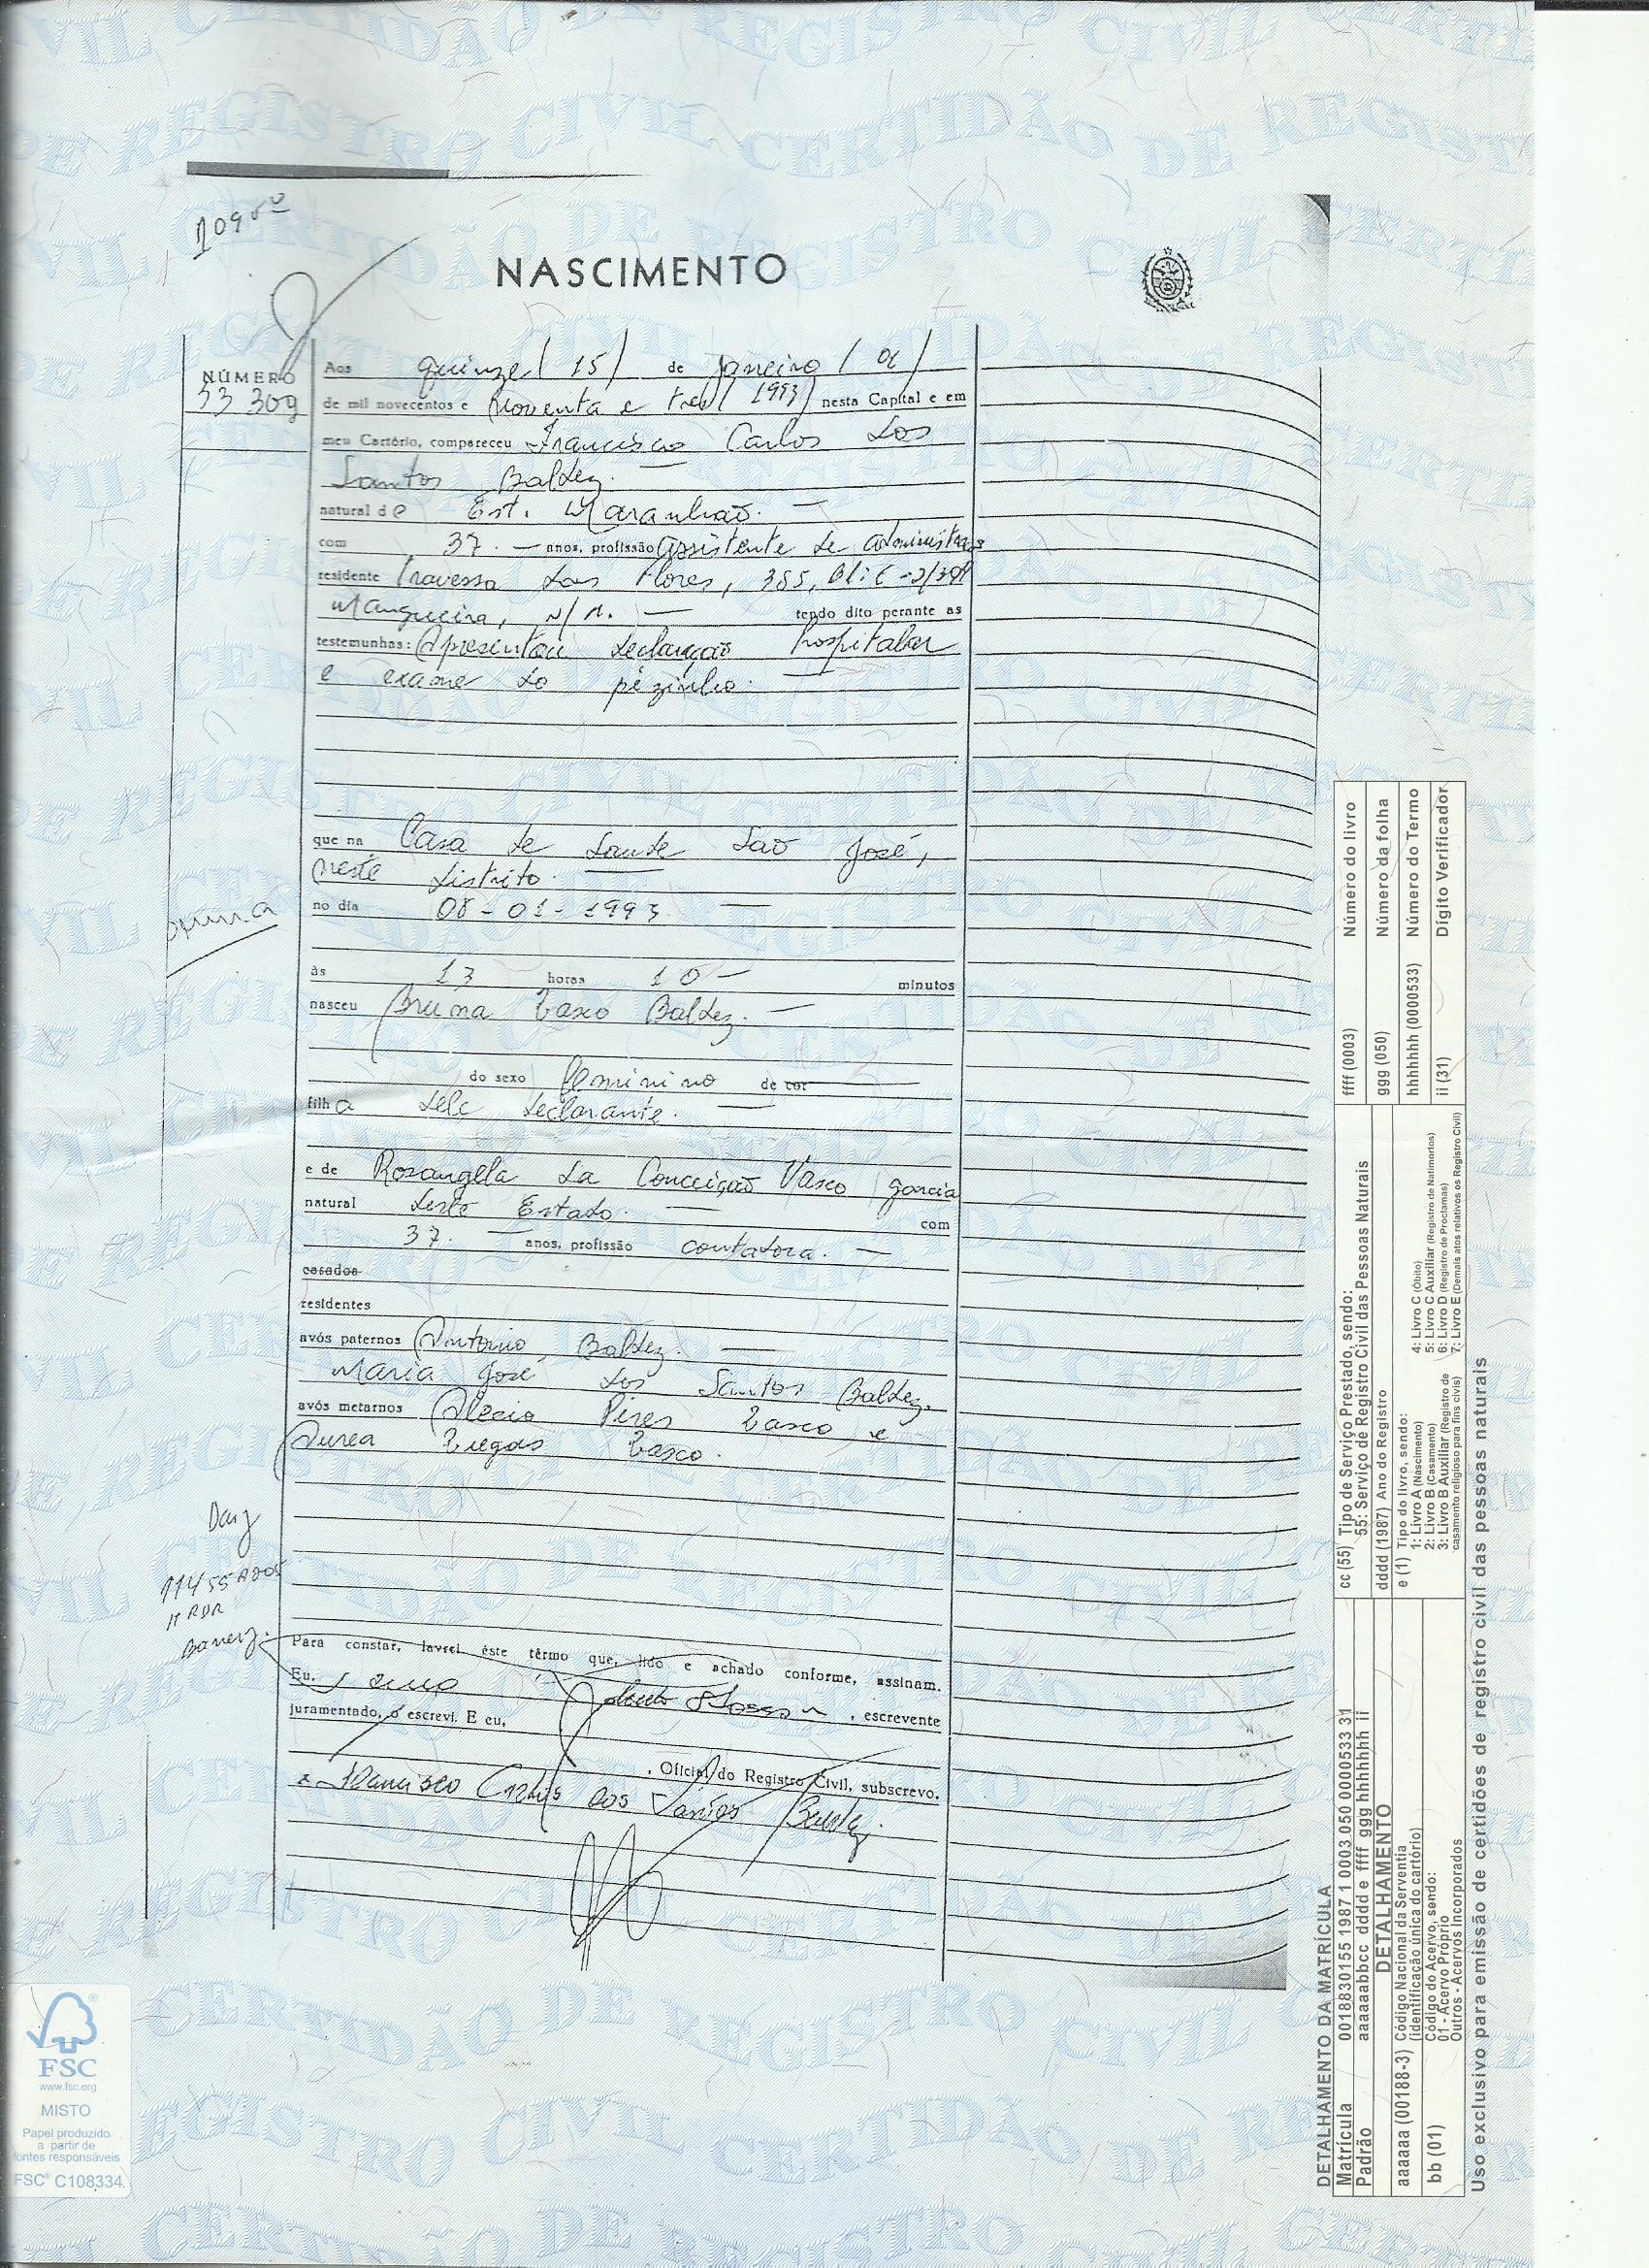 109
NASCIMENTO
NÚMERO
33 309
Aos quinze / 15 / de Janeiro / 01 /
de mil novecentos e Noventa e tres / 1993 / nesta Capital e em
meu Cartório, compareceu Francisco Carlos dos
Santos Baldez. —
natural de Est. Maranhão. —
com 37. — anos, profissão assistente de administração
residente Travessa das Flores, 385,
Mangueira, N/M. — tendo dito perante as
testemunhas: Apresentou declaração hospitalar
e exame do pézinho. —
que na Casa de Saude São José,
neste distrito. —
no dia 08-01-1993. —
às 13 horas 10 — minutos
nasceu Bruna Vasco Baldez. —
do sexo feminino de cor
filha dele declarante. —
e de Rosangela da Conceição Vasco Garcia
natural deste Estado. — com
37. — anos, profissão contadora. —
casados
residentes
avós paternos Antonio Baldez. —
Maria José dos Santos Baldez.
avós metarnos Alecio Pires Vasco e
Aurea Viegas Vasco.
Darj
Banerj.
Para constar, lavrei êste têrmo que, lido e achado conforme, assinam.
Eu, , escrevente
juramentado, o escrevi. E eu,
, Oficial do Registro Civil, subscrevo.
x Francisco Carlos dos Santos Baldez
DETALHAMENTO DA MATRÍCULA
Matrícula 0018830155 1987 1 0003 050 0000533 31
Padrão aaaaaabbcc dddd e ffff ggg hhhhhhh ii
DETALHAMENTO
aaaaaa (00188-3) Código Nacional da Serventia
(identificação única do cartório)
bb (01) Código do Acervo, sendo:
01 - Acervo Próprio
Outros - Acervos Incorporados
cc (55) Tipo de Serviço Prestado, sendo:
55: Serviço de Registro Civil das Pessoas Naturais
dddd (1987) Ano do Registro
e (1) Tipo do livro, sendo:
1: Livro A (Nascimento)
2: Livro B (Casamento)
3: Livro B Auxiliar (Registro de
casamento religioso para fins civis)
4: Livro C (Óbito)
5: Livro C Auxiliar (Registro de Natimortos)
6: Livro D (Registro de Proclamas)
7: Livro E (Demais atos relativos os Registro Civil)
ffff (0003) Número do livro
ggg (050) Número da folha
hhhhhhh (0000533) Número do Termo
ii (31) Dígito Verificador
Uso exclusivo para emissão de certidões de registro civil das pessoas naturais
FSC
www.fsc.org
MISTO
Papel produzido
a partir de
fontes responsáveis
FSC® C108334
CERTIDÃO DE REGISTRO CIVIL